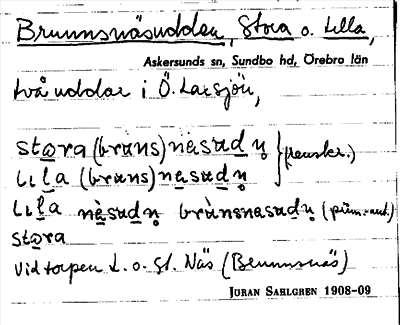 Brunnsnäsudden, Stora o. Lilla,
Askersunds sn, Sundbo hd, Örebro län
två uddar i Ö. Laxsjön,
stora (bräns) näsudn̥ } (renskr.)
lila (bräns) näsudn̥
lila näsudn̥ brùnsnasudn̥ (prim.-ant.)
stora
vid torpen L. o. St. Näs (Brunnsnäs)
JURAN SAHLGREN 1908-09